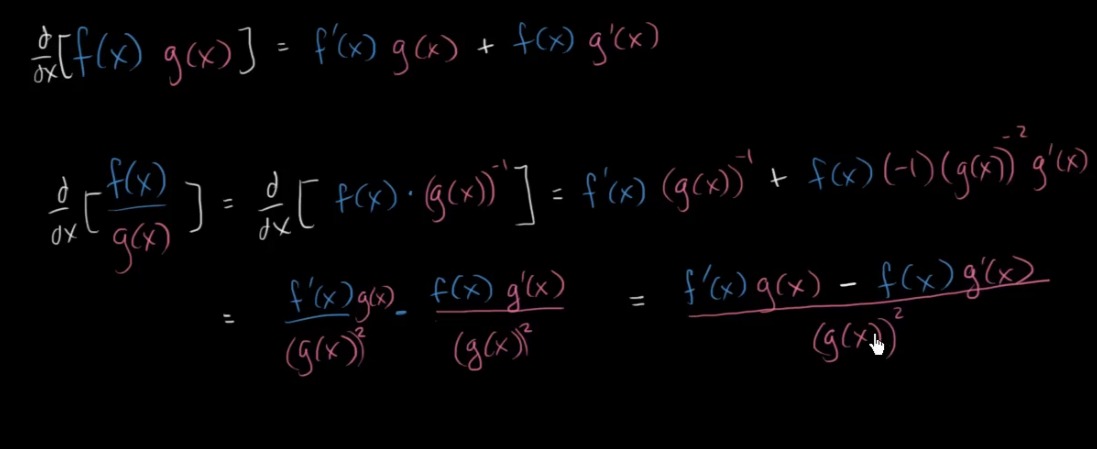 d/dx [f(x) g(x)] = f'(x) g(x) + f(x) g'(x)
d/dx [f(x)/g(x)] = d/dx [f(x) · (g(x))⁻¹] = f'(x) (g(x))⁻¹ + f(x) (-1) (g(x))⁻² g'(x)
= f'(x) g(x)/(g(x))² - f(x) g'(x)/(g(x))² = f'(x) g(x) - f(x) g'(x)/(g(x))²